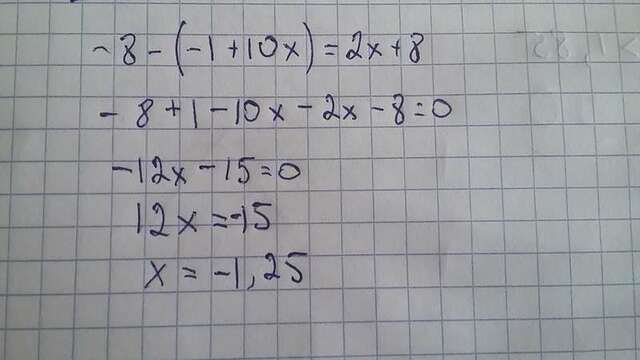 -8-(-1+10x)=2x+8
-8+1-10x-2x-8=0
-12x-15=0
12x=-15
x=-1,25